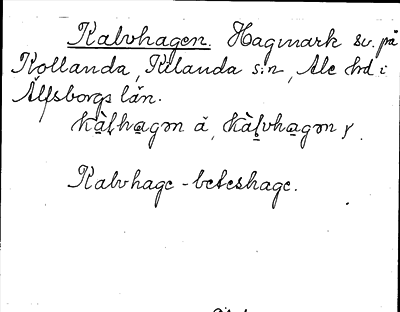 Kalvhagen. Hagmark sv. på
Kollanda, Kilanda s:n, Ale hd i
Älfsborgs län.
kàḷhagən ä, kàḷvhagən y.
Kalvhage - beteshage.